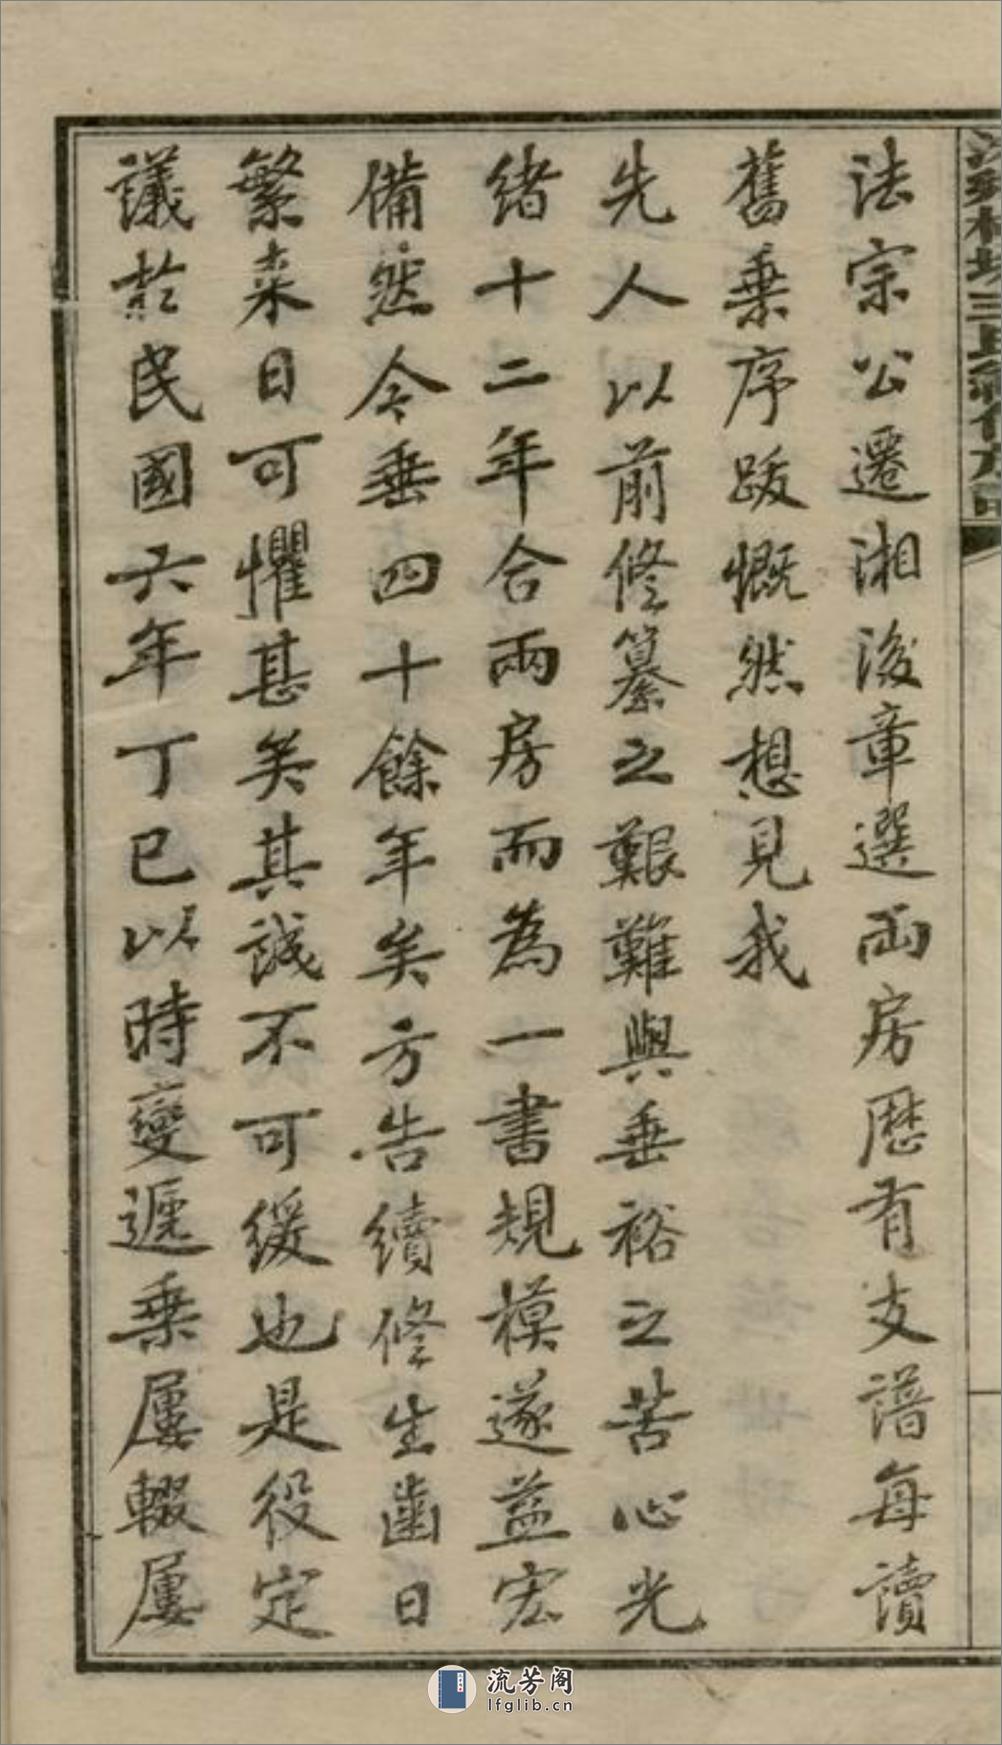 法宗公遷湘後章選兩房歷有支譜每讀
舊乗序跋慨然想見我
先人以前修纂之艱難與垂裕之苦心光
緒十二年合兩房而為一書規模遂益宏
備然今垂四十餘年矣方告續修生齒日
繁來日可懼甚矣其誠不可緩也是役定
議於民國六年丁巳以時變遞乗屢輟屢
流芳阁
lfglib.cn